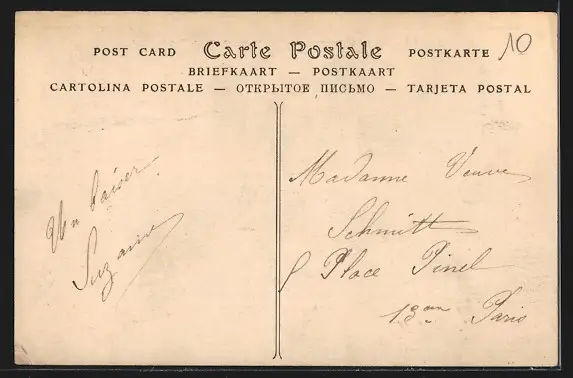 POST CARD Carte Postale POSTKARTE 10
BRIEFKAART — POSTKAART
CARTOLINA POSTALE — ОТКРЫТОЕ ПИСЬМО — TARJETA POSTAL
Un baiser
Suzanne
Madame Veuve
Schmitt
8 Place Pinel
13eme Paris